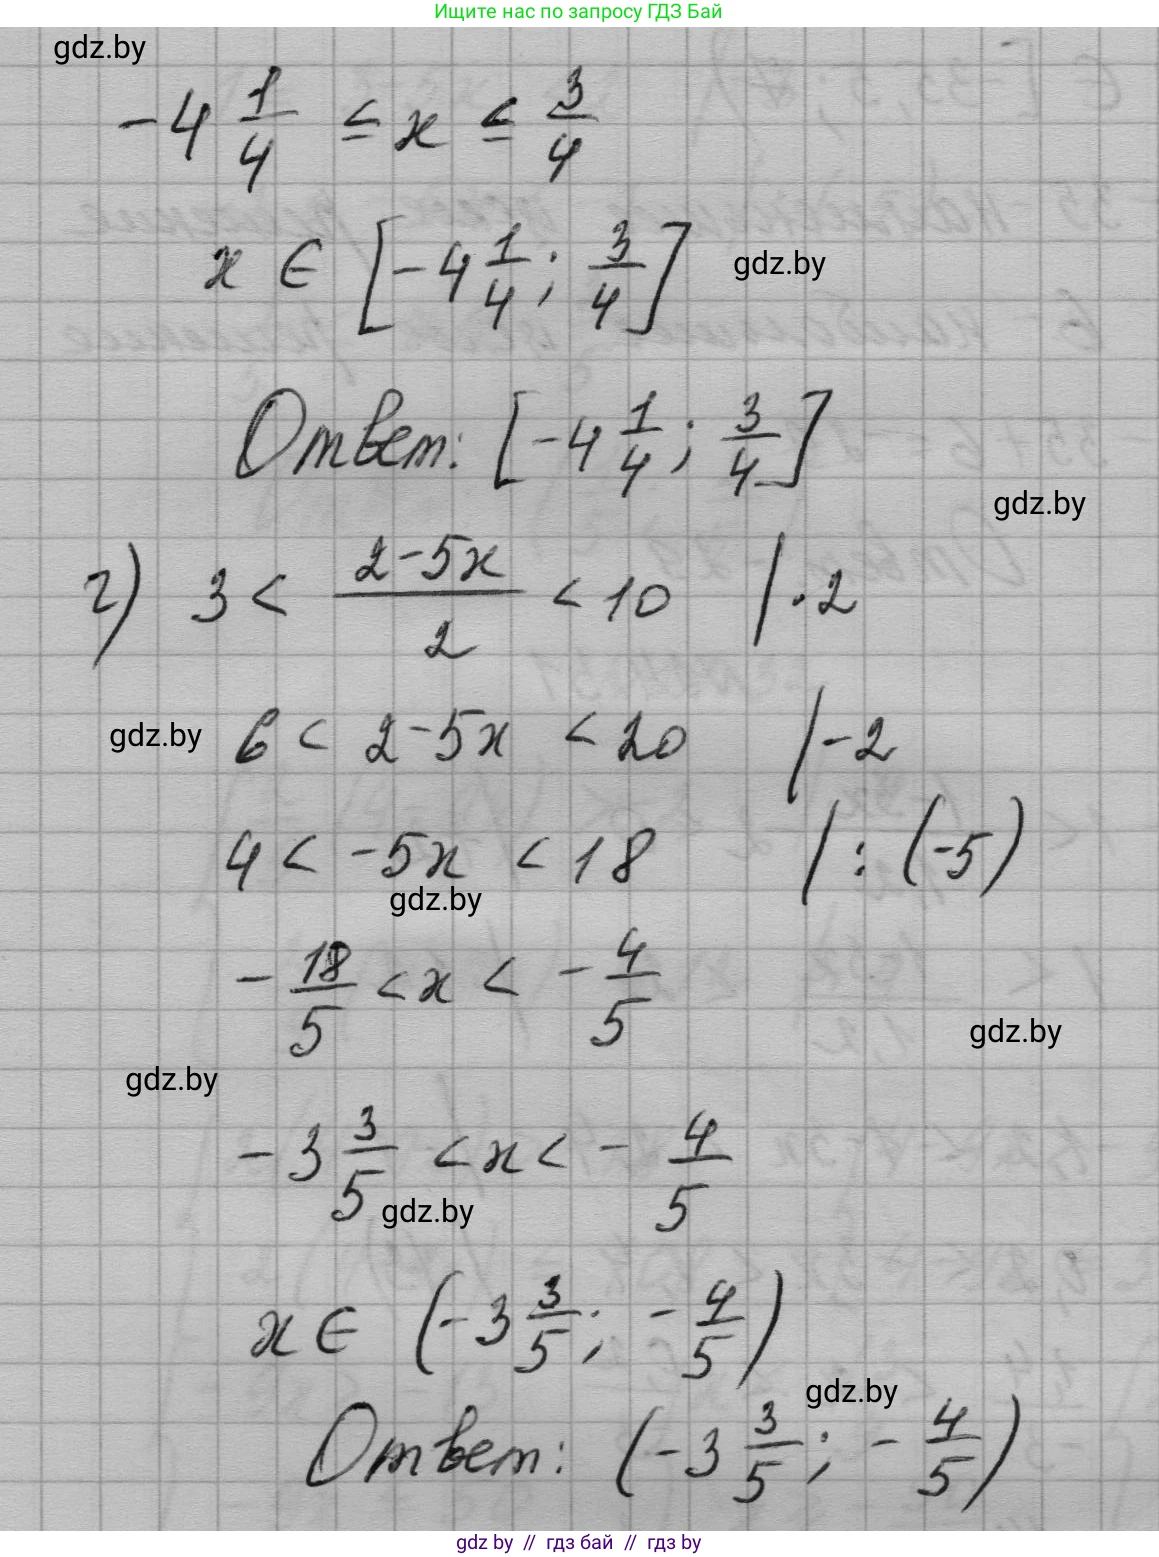 Ищите нас по запросу ГДЗ Бай
gdz.by
-4 1/4 ≤ x ≤ 3/4
x ∈ [-4 1/4; 3/4]
gdz.by
Ответ: [-4 1/4; 3/4]
gdz.by
г) 3 < (2-5x)/2 < 10 | ·2
gdz.by
6 < 2-5x < 20 | -2
4 < -5x < 18 | : (-5)
gdz.by
-18/5 < x < -4/5
gdz.by
gdz.by
-3 3/5 < x < -4/5
gdz.by
x ∈ (-3 3/5; -4/5)
gdz.by
Ответ: (-3 3/5; -4/5)
gdz.by // гдз бай // гдз by